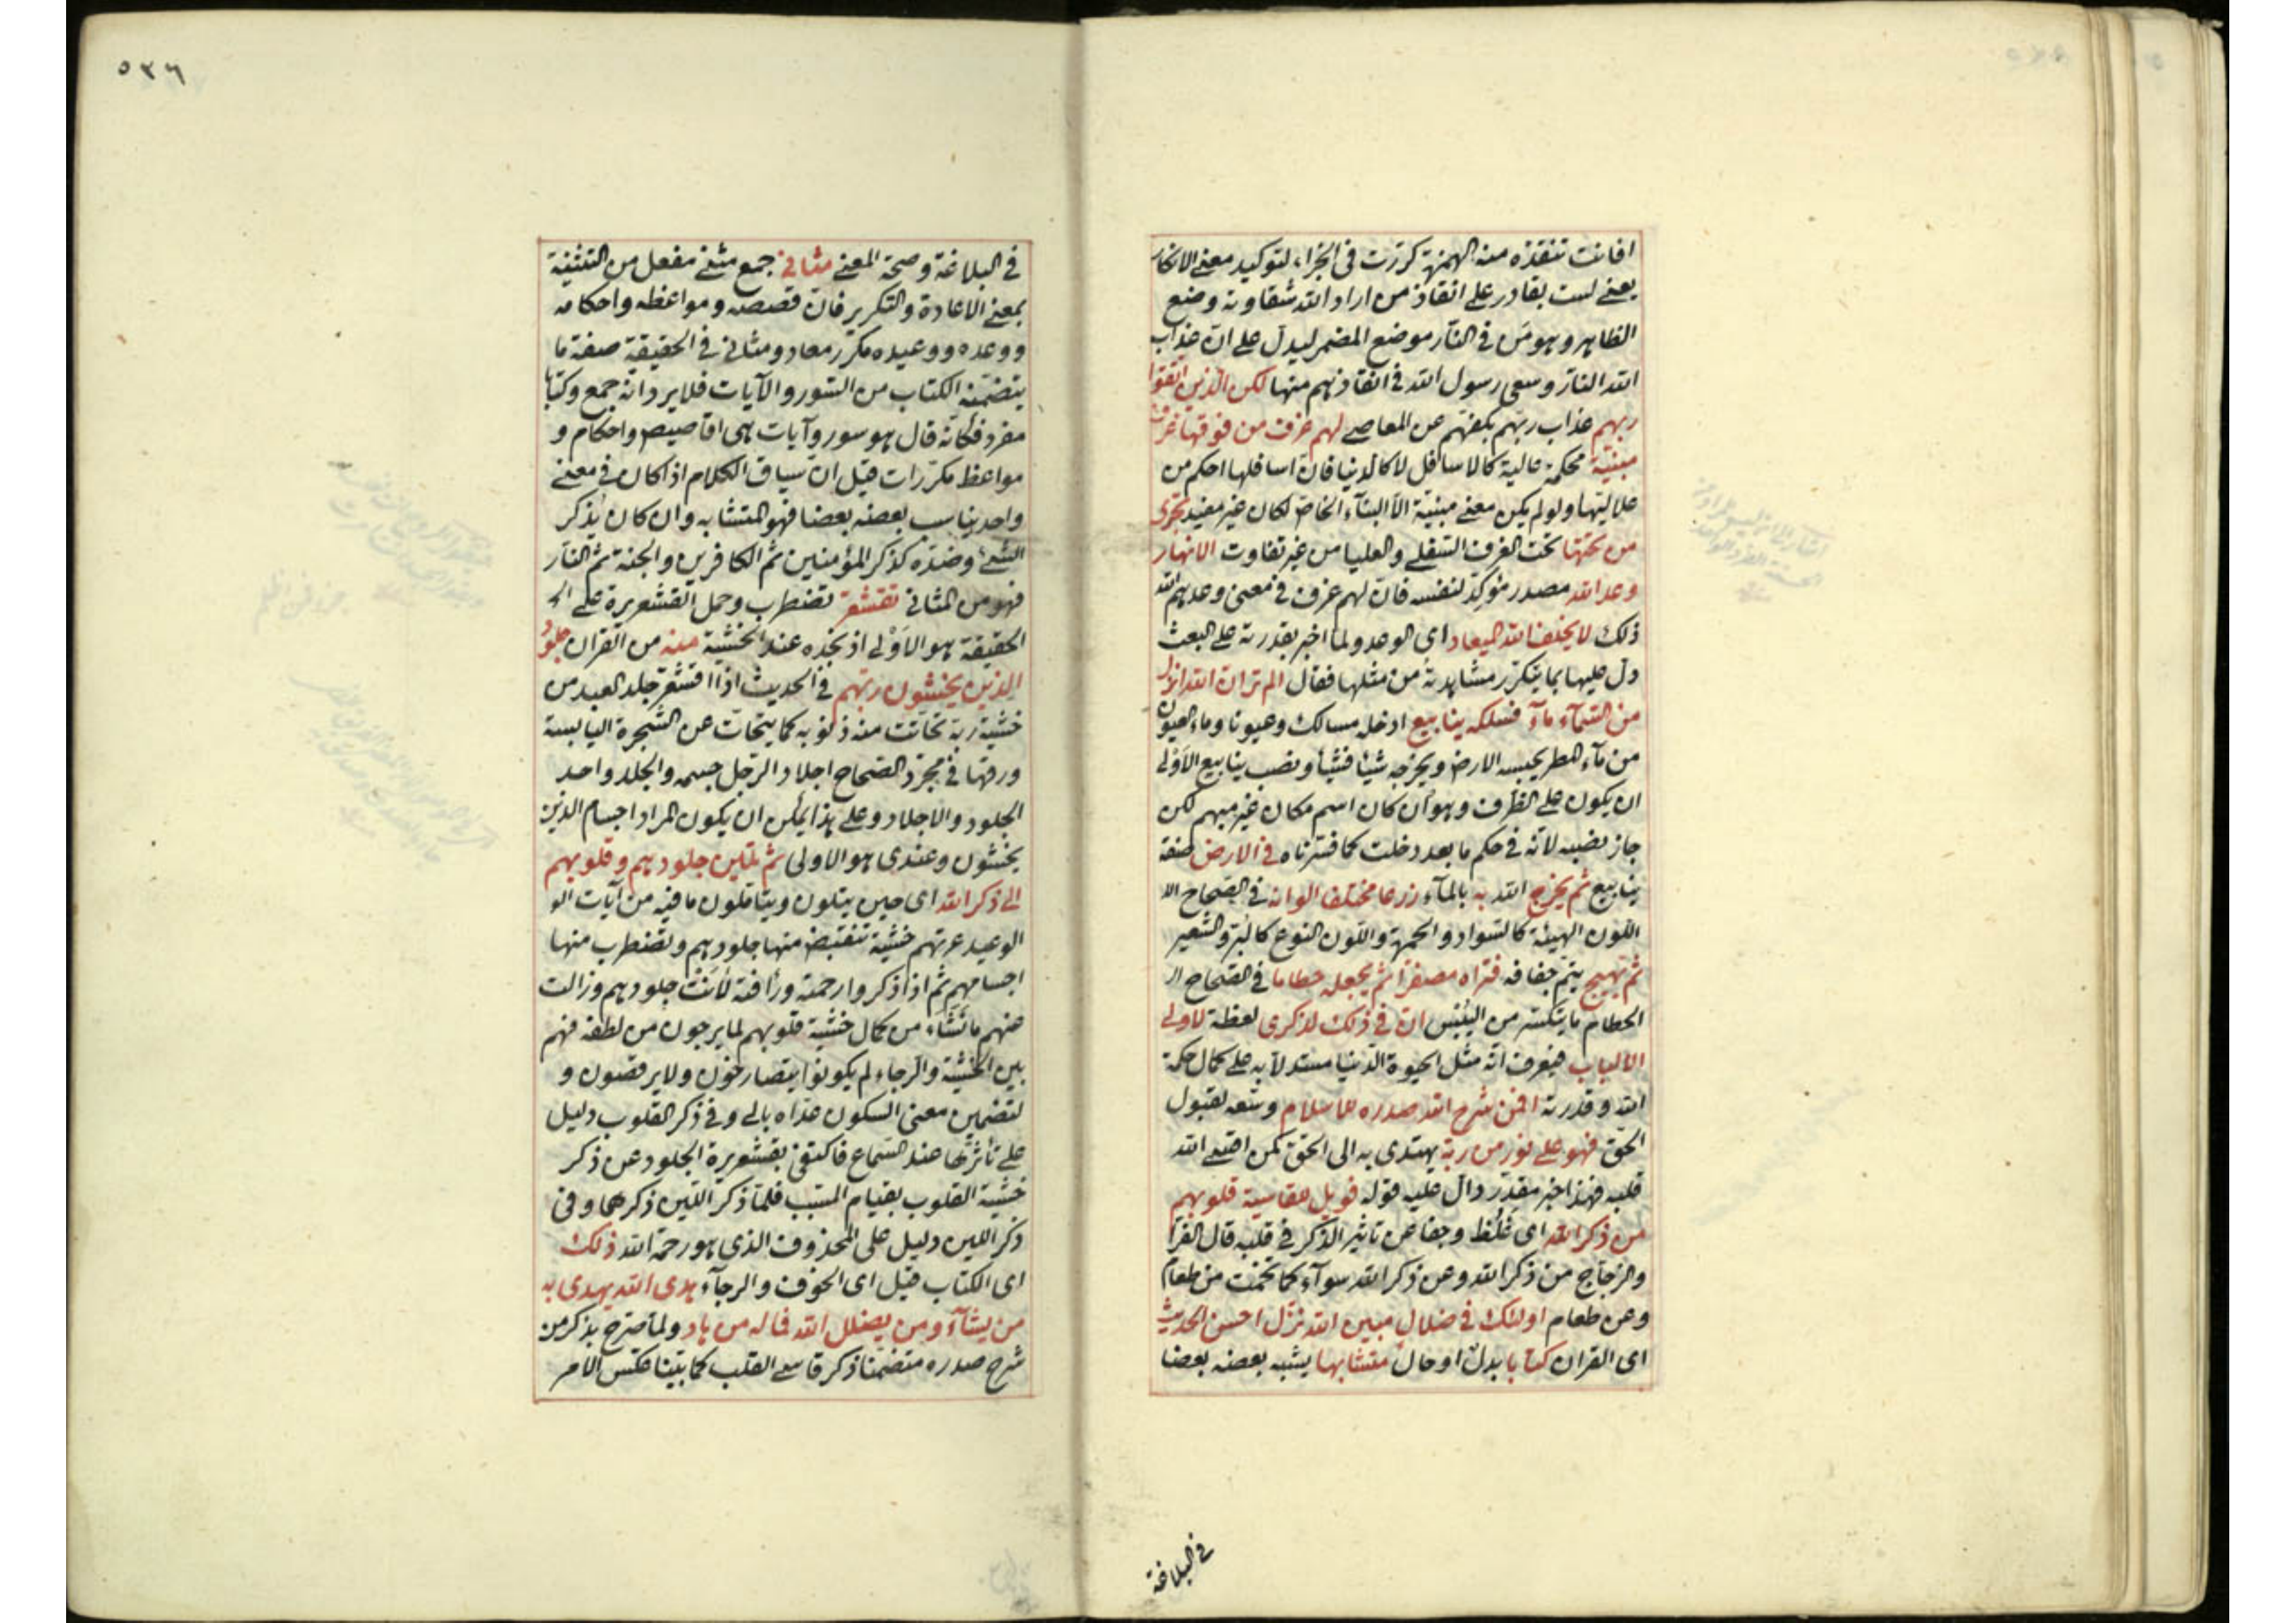 افانت تنقذه منه الهمزة كررت فى الجزاء لتوكيد معنى الانكار
يعنى لست بقادر على انقاذ من اراد الله شقاوته وضع
الظاهر وهو من فى النار موضع المضمر ليدل على ان عذاب
الله النار وسعى رسول الله فى انقاذهم منها لكن الذين اتقوا
ربهم عذاب ربهم بكفهم عن المعاصى لهم غرف من فوقها غرف
مبنية محكمة عالية كالاسافل لا كالدنيا فان اسافلها احكم من
علاليتها ولو لم يكن معنى مبنية الا البناء الخاص لكان غير مفيد تجرى
من تحتها تحت الغرف السفلى والعليا من غير تفاوت الانهار
وعد الله مصدر مؤكد لنفسه فان لهم غرف فى معنى وعدهم الله
ذلك لا يخلف الله الميعاد اى الوعد ولما اخبر بقدرته على البعث
دل عليها بما يتكرر مشاهدته من مثلها فقال الم تر ان الله انزل
من السمآء مآء فسلكه ينابيع ادخله مسالك وعيونا وماء العيون
من مآء المطر يحبسه الارض ويخرجه شيئا فشيئا ونصب ينابيع الاولى
ان يكون على الظرف وهو ان كان اسم مكان غير مبهم لكن
جاز نصبه لانه فى حكم ما بعد دخلت كما فسرناه فى الارض صفة
ينابيع ثم يخرج الله به بالمآء زرعا مختلفا الوانه فى الصحاح الا
اللون الهيئة كالسواد والحمرة واللون النوع كالبر والشعير
ثم يهيج يتم جفافه فتراه مصفرا ثم يجعله حطاما فى الصحاح ال
الحطام ما يتكسر من اليبس ان فى ذلك لذكرى لعظة لاولى
الالباب فيعرف انه مثل الحيوة الدنيا مستدلا به على كمال حكمة
الله وقدرته افمن شرح الله صدره للاسلام وسعه لقبول
الحق فهو على نور من ربه يهتدى به الى الحق كمن اقسى الله
قلبه فهذا خبر مقدر دال عليه قوله فويل للقاسية قلوبهم
من ذكر الله اى غلظ وجفا عن تاثير الذكر فى قلبه قال الفرا
والزجاج من ذكر الله وعن ذكر الله سوآء كما تخمت من طعام
وعن طعام اولئك فى ضلال مبين الله نزل احسن الحديث
اى القران كتابا بدل او حال متشابها يشبه بعضه بعضا
فى البلاغة
٥٣٦
فى البلاغة وصحة المعنى مثانى جمع مثنى مفعل من التثنية
بمعنى الاعادة والتكرير فان قصصه ومواعظه واحكامه
ووعده ووعيده مكرر معاد ومثانى فى الحقيقة صفة ما
يتضمنه الكتاب من السور والآيات فلا يرد انه جمع وكتابا
مفرد فكانه قال هو سور وآيات هى اقاصيص واحكام و
مواعظ مكررات قيل ان سياق الكلام اذا كان فى معنى
واحد يناسب بعضه بعضا فهو المتشابه وان كان يذكر
الشئ وضده كذكر المؤمنين ثم الكافرين والجنة ثم النار
فهو من المثانى تقشعر تضطرب وحمل القشعريرة على ال
الحقيقة هو الاولى اذ نجده عند الخشية منه من القران جلود
الذين يخشون ربهم فى الحديث اذا اقشعر جلد العبد من
خشية ربه تحاتت منه ذنوبه كما يتحات عن الشجرة اليابسة
ورقها فى مجرد الصحاح اجلاد الرجل جسمه والجلد واحد
الجلود والاجلاد وعلى هذا يمكن ان يكون المراد اجسام الذين
يخشون وعندى هو الاولى ثم تلين جلودهم وقلوبهم
الى ذكر الله اى حين يتلون ويتاملون ما فيه من آيات الو
الوعيد عرتهم خشية تنقبض منها جلودهم وتضطرب منها
اجسامهم ثم اذا ذكروا رحمته ورأفته لانت جلودهم وزالت
عنهم ما نشاء من كمال خشية قلوبهم لما يرجون من لطفه فهم
بين الخشية والرجاء لم يكونوا يتصارخون ولا يرقصون و
لتضمين معنى السكون عداه بالى وفى ذكر القلوب دليل
على تأثرها عند السماع فاكتفى بقشعريرة الجلود عن ذكر
خشية القلوب بقيام المسبب فلما ذكر اللين ذكرهما وفى
ذكر اللين دليل على المحذوف الذى هو رحمة الله ذلك
اى الكتاب قيل اى الخوف والرجآء هدى الله يهدى به
من يشآء ومن يضلل الله فما له من هاد ولما صرح بذكر من
شرح صدره متضمنا ذكر قاسى القلب كما بينا عكس الامر